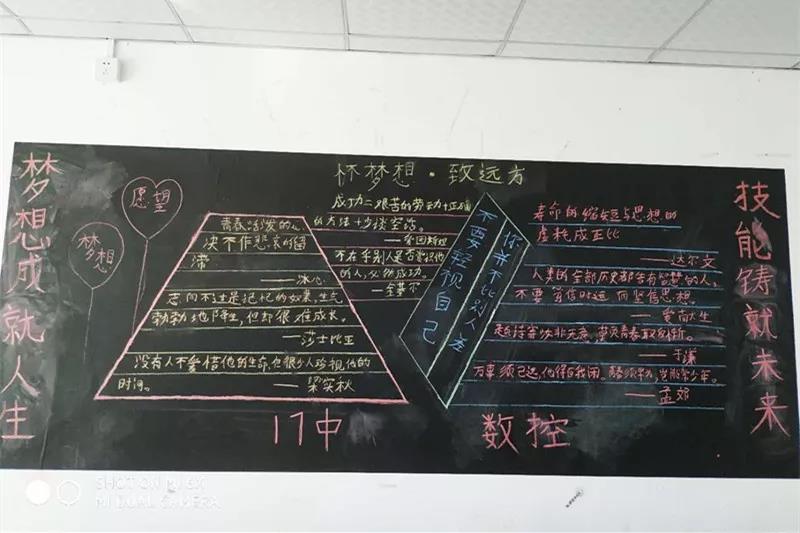 怀梦想·致远方
梦想成就人生
愿望
梦想
青春活泼的心
决不作悲哀的留
滞
——冰心
志向不过是记忆的奴隶,生气
勃勃地降生,但却很难成长。
——莎士比亚
没有人不爱惜他的生命,但很少人珍视他的
时间。
——梁实秋
成功=艰苦的劳动+正确
的方法+少谈空话。
——爱因斯坦
不在乎别人是否赏识他
的人,必然成功。
不要轻视自己
你并不比别人差
寿命的缩短与思想的
虚耗成正比
——达尔文
人类的全部历史都告诉智慧的人,
不要笃信时运 而坚信思想.
——爱尚大生
——于谦
万事须己运,他得非我闲。
——孟郊
技能铸就未来
17中
数控
SHOT ON MI 6X
MI DUAL CAMERA